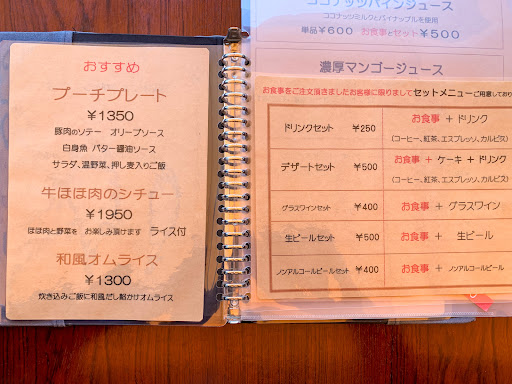 おすすめ
プーチプレート
¥1350
豚肉のソテー オリーブソース
白身魚 バター醤油ソース
サラダ、温野菜、押し麦入りご飯
牛ほほ肉のシチュー
¥1950
ほほ肉と野菜を お楽しみ頂けます ライス付
和風オムライス
¥1300
炊き込みご飯に和風だし餡かけオムライス
ココナッツパインジュース
ココナッツミルクとパイナップルを使用
単品¥600 お食事とセット¥500
濃厚マンゴージュース
お食事をご注文頂きましたお客様に限りましてセットメニューご用意しており
ドリンクセット ¥250 お食事 + ドリンク
(コーヒー、紅茶、エスプレッソ、カルピス)
デザートセット ¥500 お食事 + ケーキ + ドリンク
(コーヒー、紅茶、エスプレッソ、カルピス)
グラスワインセット ¥400 お食事 + グラスワイン
生ビールセット ¥500 お食事 + 生ビール
ノンアルコールビールセット ¥400 お食事 + ノンアルコールビール